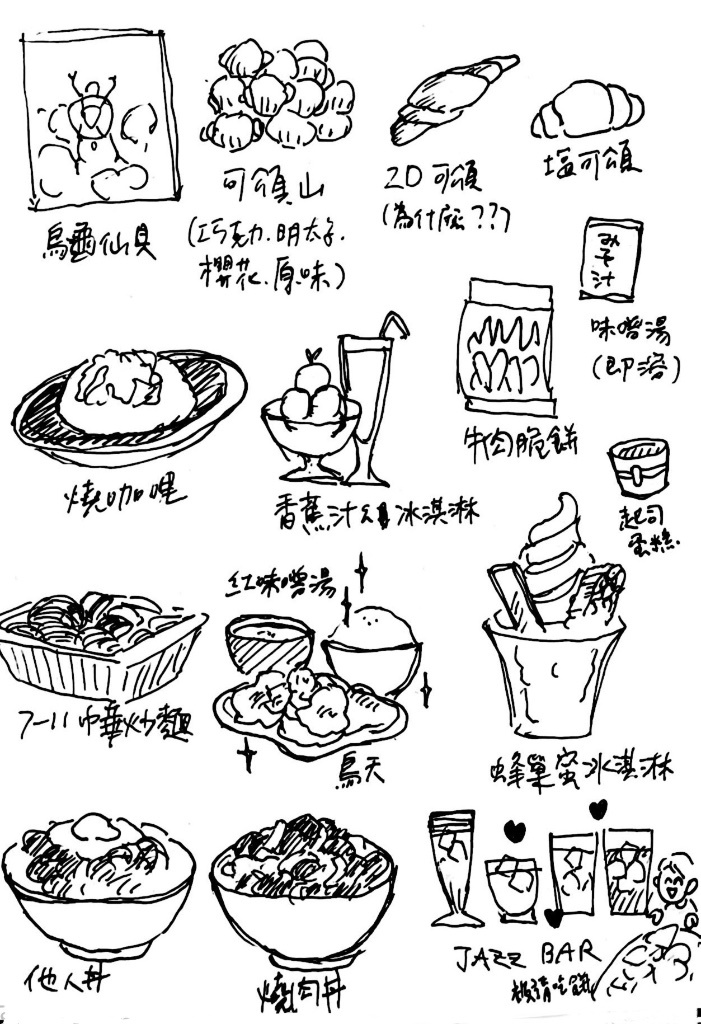 烏龜仙貝
可頌山
(巧克力.明太子.
櫻花.原味)
2D可頌
(為什麼??)
塩可頌
みそ汁
味噌湯
(即溶)
牛肉脆餅
起司
蛋糕
燒咖哩
香蕉汁和冰淇淋
7-11中華炒麵
紅味噌湯
鳥天
蜂巢蜜冰淇淋
他人丼
燒肉丼
JAZZ BAR
板猜吃餅